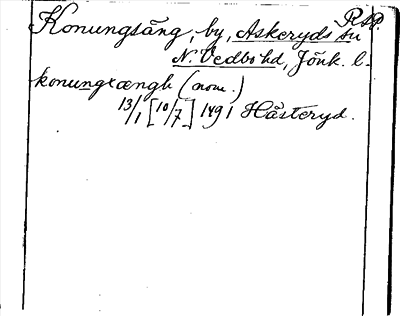 RSP.
Konungsäng, by, Askeryds sn
N. Vedbo hd, Jönk. l.
konungxængh (nom.)
13/1 [10/7] 1491 Hästeryd.